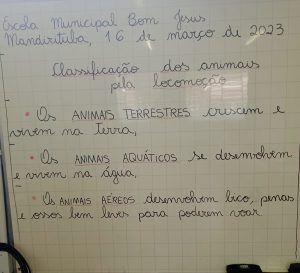 Escola Municipal Bom Jesus
Mandirituba, 16 de março de 2023
Classificação dos animais
pela locomoção
• Os ANIMAIS TERRESTRES crescem e
vivem na terra,
• Os ANIMAIS AQUÁTICOS se desenvolvem
e vivem na água.
• Os ANIMAIS AÉREOS desenvolvem bico, penas
e ossos bem leves para poderem voar.